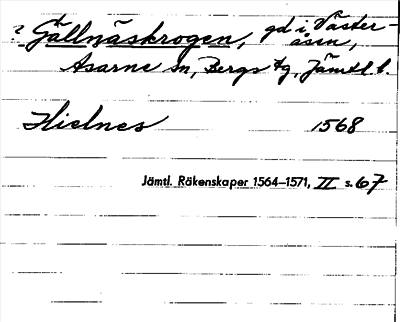 ? Gällnäskrogen, gd i Väster-
åsen,
Åsarne sn, Bergs tg, Jämtl. l.
Hielnes 1568
Jämtl. Räkenskaper 1564–1571, II s. 67